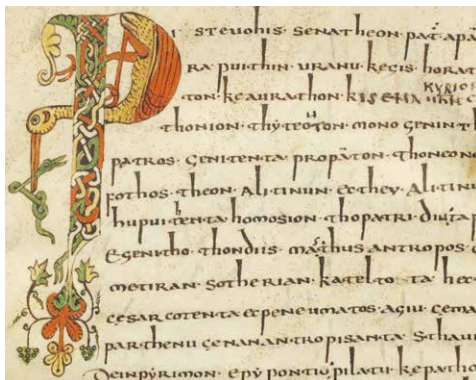 Pisteuohis · senatheon · pat · apa
ra puithin · uranu · kegis · horat
KYRIC
ton · keaurathon · kisena
thonion · thyteoton · mono genin t
patros · genitenta propaton · thoncon
fothos · theon · alitinun · ecthey · alitin
hupuitenta homosion · thopatri · diuta
egenitho · thondiis · mathus antropos ·
metiran · sotherian · katelto · ta · hec
cesarcotenta ecpeneumatos · agiu · cema
parthenu cenanantropisanta · sthau
deinpyrimon · epy pontio pilatu · kepathe